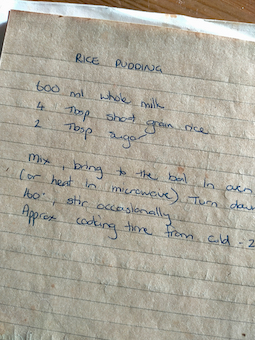 RICE PUDDING
600 ml whole milk
4 Tbsp short grain rice
2 Tbsp sugar
Mix + bring to the boil in oven
(or heat in microwave) Turn down
160°, stir occasionally
Approx cooking time from cold - 2